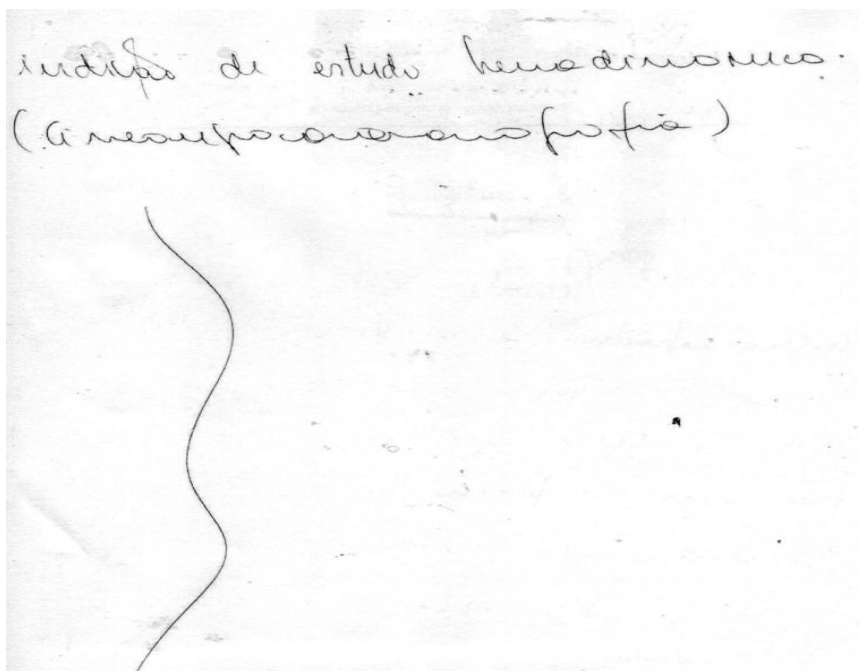 indicação de estudo hemodinâmico.
(Cineangiocoronariografia)